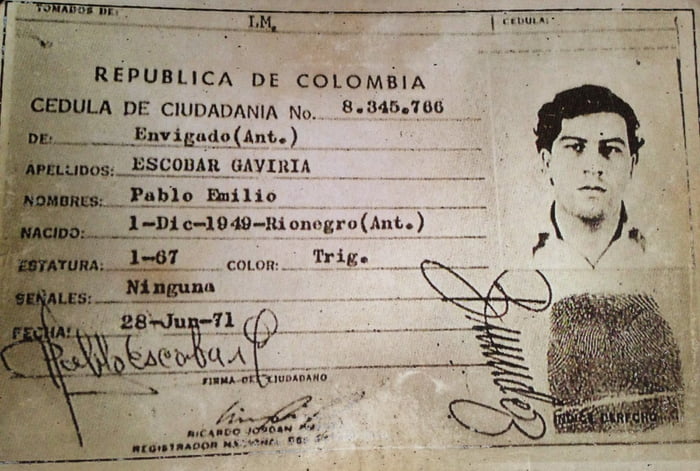 TOMADOS DE: I.M. CEDULA:
REPUBLICA DE COLOMBIA
CEDULA DE CIUDADANIA No. 8.345.766
DE: Envigado(Ant.)
APELLIDOS: ESCOBAR GAVIRIA
NOMBRES: Pablo Emilio
NACIDO: 1-Dic-1949-Rionegro(Ant.)
ESTATURA: 1-67 COLOR: Trig.
SEÑALES: Ninguna
FECHA: 28-Jun-71
Pablo Escobar G
FIRMA DEL CIUDADANO
RICARDO JORDAN
REGISTRADOR
INDICE DERECHO